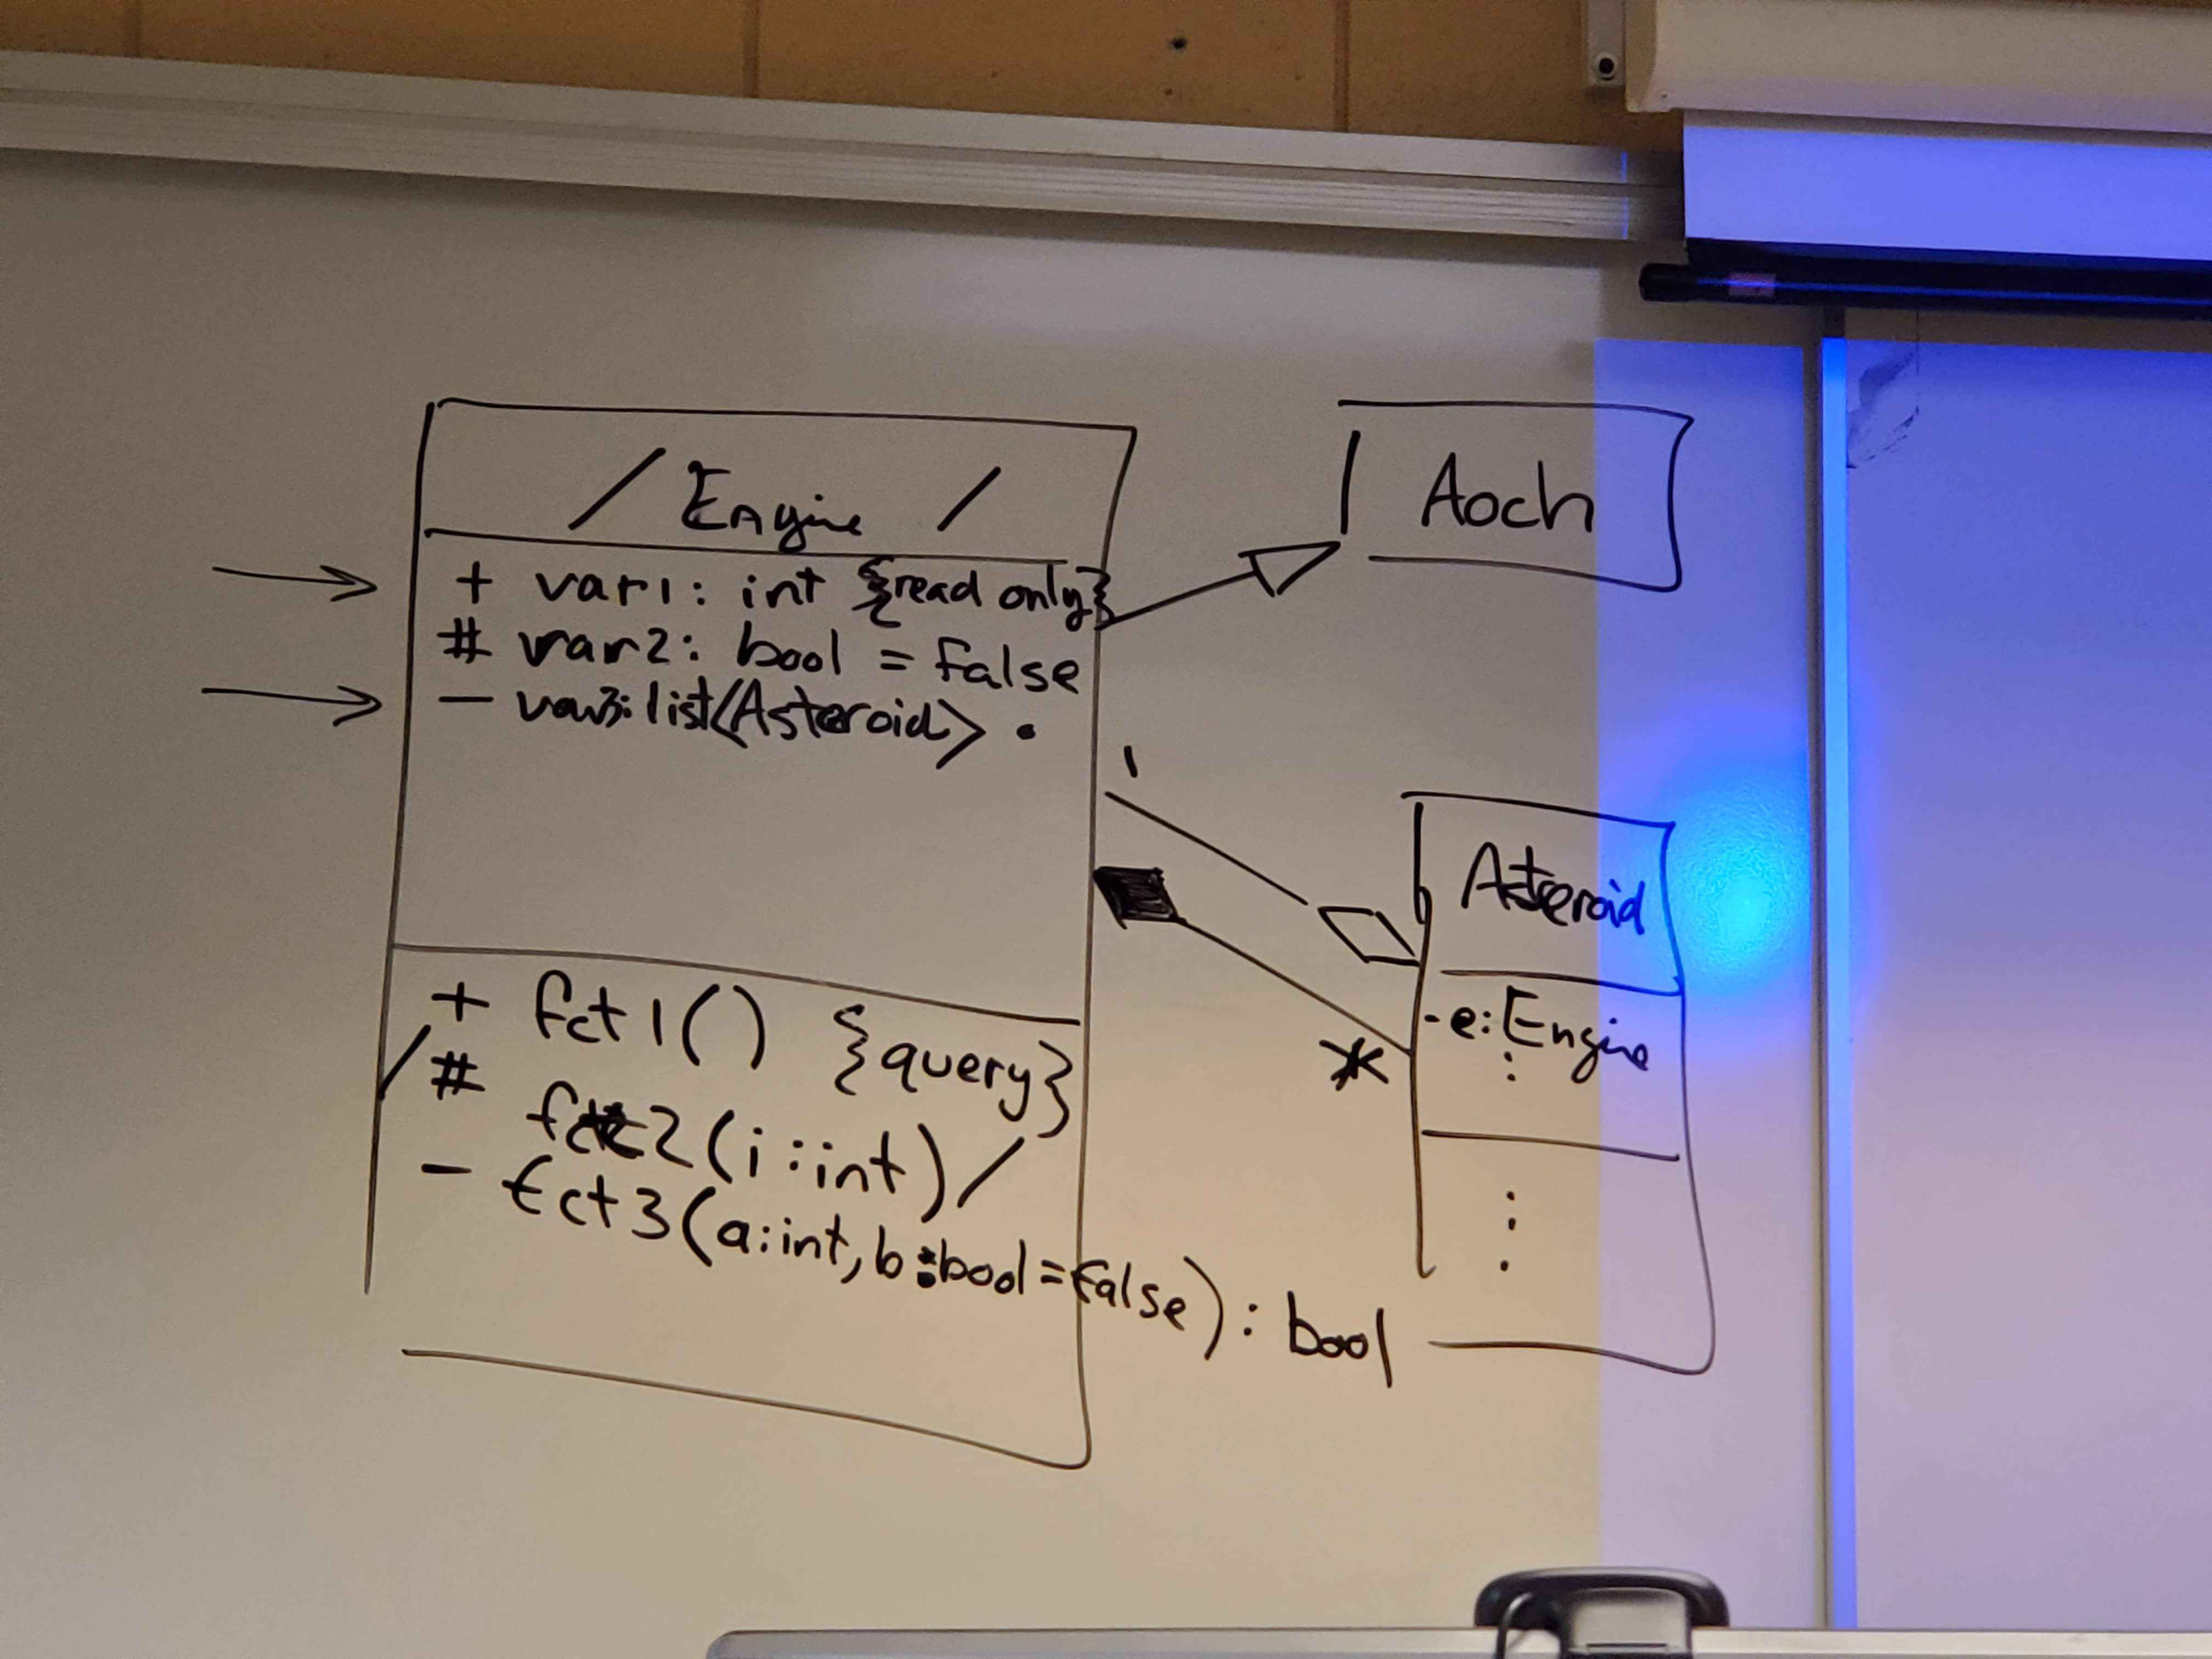 / Engine /
+ var1: int {read only}
# var2: bool = false
- var3: list<Asteroid> •
+ fct1() {query}
/# fct2(i:int)/
- fct3(a:int, b:bool=false): bool
Aoch
1
*
Asteroid
-e: Engine